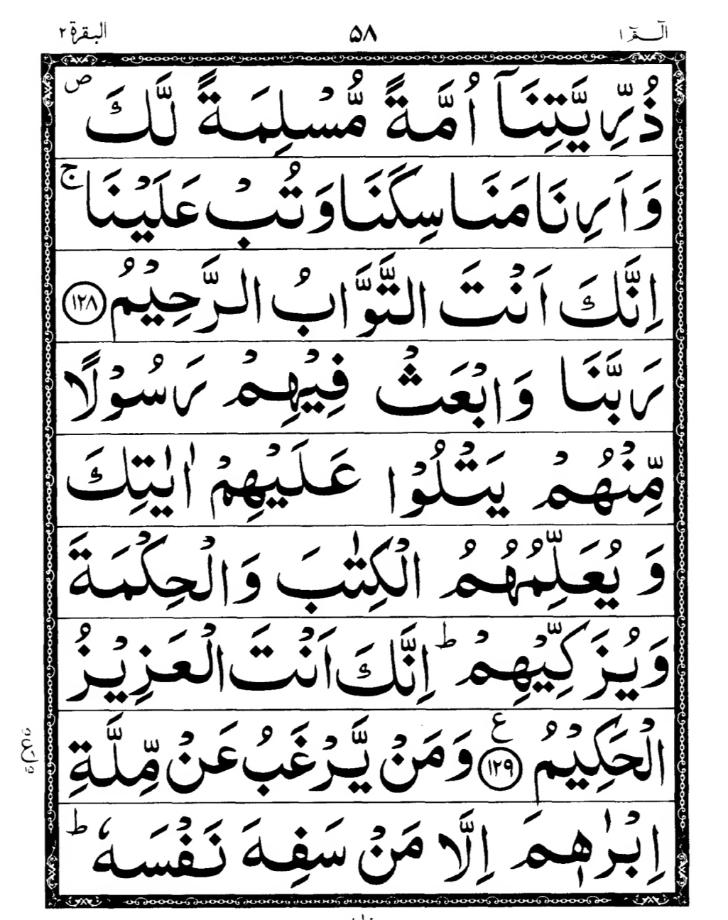 الٓمّٓ ١ ٥٨ البقرة ٢
ذُرِّيَّتِنَآ اُمَّةً مُّسْلِمَةً لَّكَ ۪ص
وَاَرِنَا مَنَاسِكَنَا وَتُبْ عَلَيْنَا ۚ
اِنَّكَ اَنْتَ التَّوَّابُ الرَّحِيْمُ ﴿١٢٨﴾
رَبَّنَا وَابْعَثْ فِيْهِمْ رَسُوْلًا
مِّنْهُمْ يَتْلُوْا عَلَيْهِمْ اٰيٰتِكَ
وَيُعَلِّمُهُمُ الْكِتٰبَ وَالْحِكْمَةَ
وَيُزَكِّيْهِمْ ؕ اِنَّكَ اَنْتَ الْعَزِيْزُ
الْحَكِيْمُ ﴿١٢٩﴾ ع وَمَنْ يَّرْغَبُ عَنْ مِّلَّةِ
اِبْرٰهٖمَ اِلَّا مَنْ سَفِهَ نَفْسَهٗ ؕ